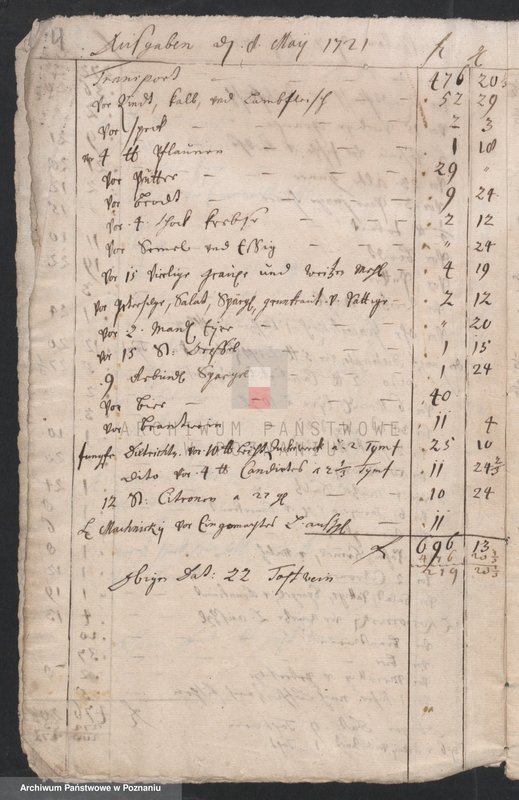 Ausgaben d. 8. Maÿ 1721 f gl
Transport — — 476 20
vor Rindt, Kalb, und Lambfleisch 52 29
vor Speck — — 2 3
vor 4 tt Pflaumen — — 1 18
vor Putter — — 29 "
vor Brodt — — 9 24
vor 4 schock Krebse — — 2 12
vor Semel und Essig — — " 24
vor 15 Graupe und weitzen Mehl 4 19
vor Petersilge, Salat, Spargl, v. — 2 12
vor 2. Mandl Eyer — — " 20
vor 15 St: — — 1 15
9 Gebündl Spargel — — 1 24
vor Bier — — 40
vor Brantwein — — 11 4
vor 10 tt a 2 Tymf 25 10
dito vor 4 tt Candirtes a 2 1/3 Tymf 11 24 2/3
12 St: Citronen a 27 gl 10 24
vor Eingemachtes 11
f 696 13
476 20 1/3
219
Dat: 22
ARCHIWUM PAŃSTWOWE
Archiwum Państwowe w Poznaniu